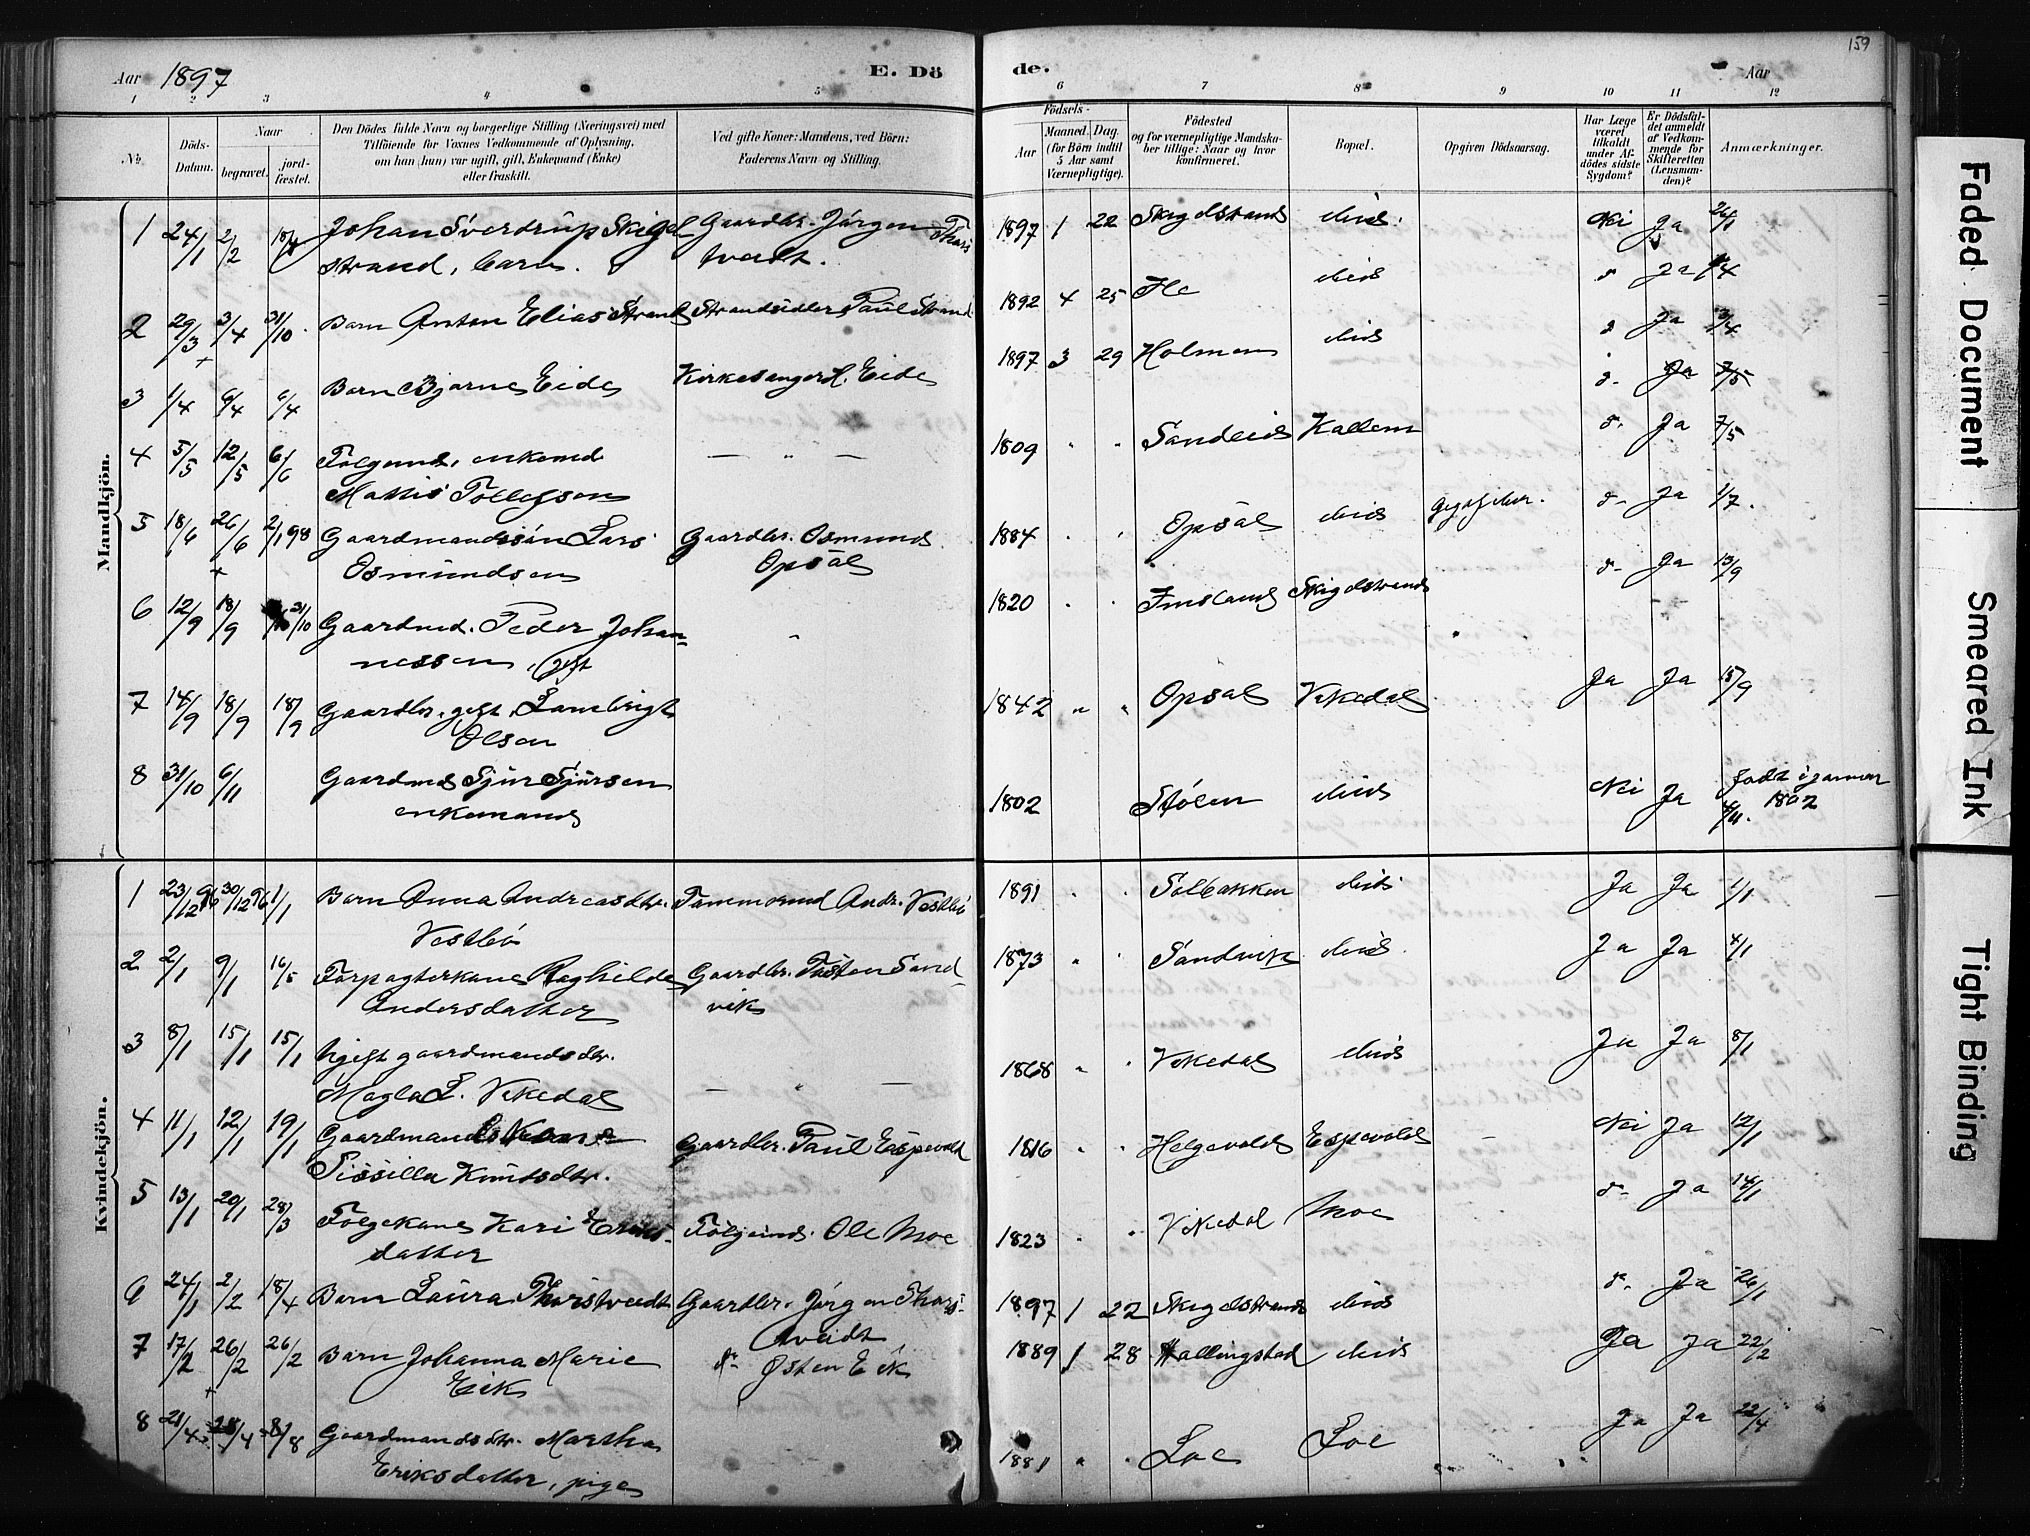 159
Aar 1897 E. Dö de. Aar
1 2 3 4 5 6 7 8 9 10 11 12
No.
Döds-Datum.
Naar
begravet.
jord-fæstet.
Den Dödes fulde Navn og borgerlige Stilling (Næringsvei) med
Tilföiende for Voxnes Vedkommende af Oplysning,
om han (hun) var ugift, gift, Enkemand (Enke)
eller fraskilt.
Ved gifte Koner: Mandens, ved Börn:
Faderens Navn og Stilling.
Födsels-
Aar
Maaned. Dag.
(for Börn indtil
5 Aar samt
Værnepligtige).
Födested
og for værnepligtige Mandska-
ber tillige: Naar og hvor
konfirmeret.
Bopæl.
Opgiven Dödsaarsag.
Har Læge
været
tilkaldt
under Af-
dödes sidste
Sygdom?
Er Dödsfal-
det anmeldt
af Vedkom-
mende for
Skifteretten
(Lensman-
den)?
Anmærkninger.
Mandkjön.
1 24/1 2/2 18/4 Johan Sverdrup Skigel Gaardbr. Jörgen Thors 1897 1 22 Skigelstrand ibid. Nei Ja 26/1
strand, barn. tveidt.
2 29/3 3/4 31/10 Barn Anton Elias Strand Strandsidder Paul Strand 1892 4 25 Ile ibid d Ja
3 1/4 6/4 6/4 Barn Bjarne Eide Kirkesanger H. Eide 1897 3 29 Holmen ibid d Ja 3/4
d. Ja 7/5
4 5/5 12/5 6/6 Følgemd, enkemd — " — 1809 " " Sandeid Kallem d. Ja 7/5
Mattis Tollefsen
5 18/6 26/6 2/1 98 Gaardmandssøn Lars Gaardbr. Osmund 1884 " " Opsal ibid Gigtfeber. d. Ja 1/7.
Osmundsen Opsal
6 12/9 18/9 31/10 Gaardmd. Peder Johan- " 1820 " " Imsland Skigelstrand d. Ja 13/9
nessen, gift
7 14/9 18/9 18/9 Gaardbr. gift, Lambrigt 1842 " " Opsal Vikedal Ja Ja 15/9
Olsen
8 31/10 6/11 Gaardmd Sjur Sjursen 1802 Stølen ibid Nei Ja født i januar
enkemand 4/11. 1802
Kvindekjön.
1 23/12 96 30/12 96 1/1 Barn Anna Andreasdtr. Tømmermd Andr. Vestbø 1891 " " Solbakken ibid Ja Ja 1/1
Vestbø
2 2/1 9/1 16/5 Forpagterkone Raghilde Gaardbr. Tosten Sand- 1873 " " Sandvik ibid. Ja Ja 4/1
Andersdatter vik
3 8/1 15/1 15/1 Ugift gaardmandsdtr. — " — 1868 " " Vikedal ibid Ja Ja 8/1
Magla L. Vikedal
4 11/1 12/1 19/1 Gaardmands Gaardbr. Paul Espevold 1816 " " Helgevold Espevold — Nei Ja 12/1
Sissilla Knutsdtr.
5 13/1 20/1 28/3 Følgekone Kari Eriks- Følgemd. Ole Moe 1823 " " Vikedal Moe d. Ja 14/1
datter
6 24/1 2/2 18/4 Barn Laura Thorstveidt Gaardbr. Jörgen Thors- 1897 1 22 Skigelstrand ibid d. Ja 26/1
tveidt
7 17/2 26/2 26/2 Barn Johanna Marie d. Østen Eik 1889 1 28 Hallingstad ibid Ja Ja 22/2
Eik
8 21/4 28/4 8/8 Gaardmandsdtr. Martha 1881 " " Loe Loe Ja Ja 22/4
Eriksdatter, pige
Faded Document
Smeared Ink
Tight Binding